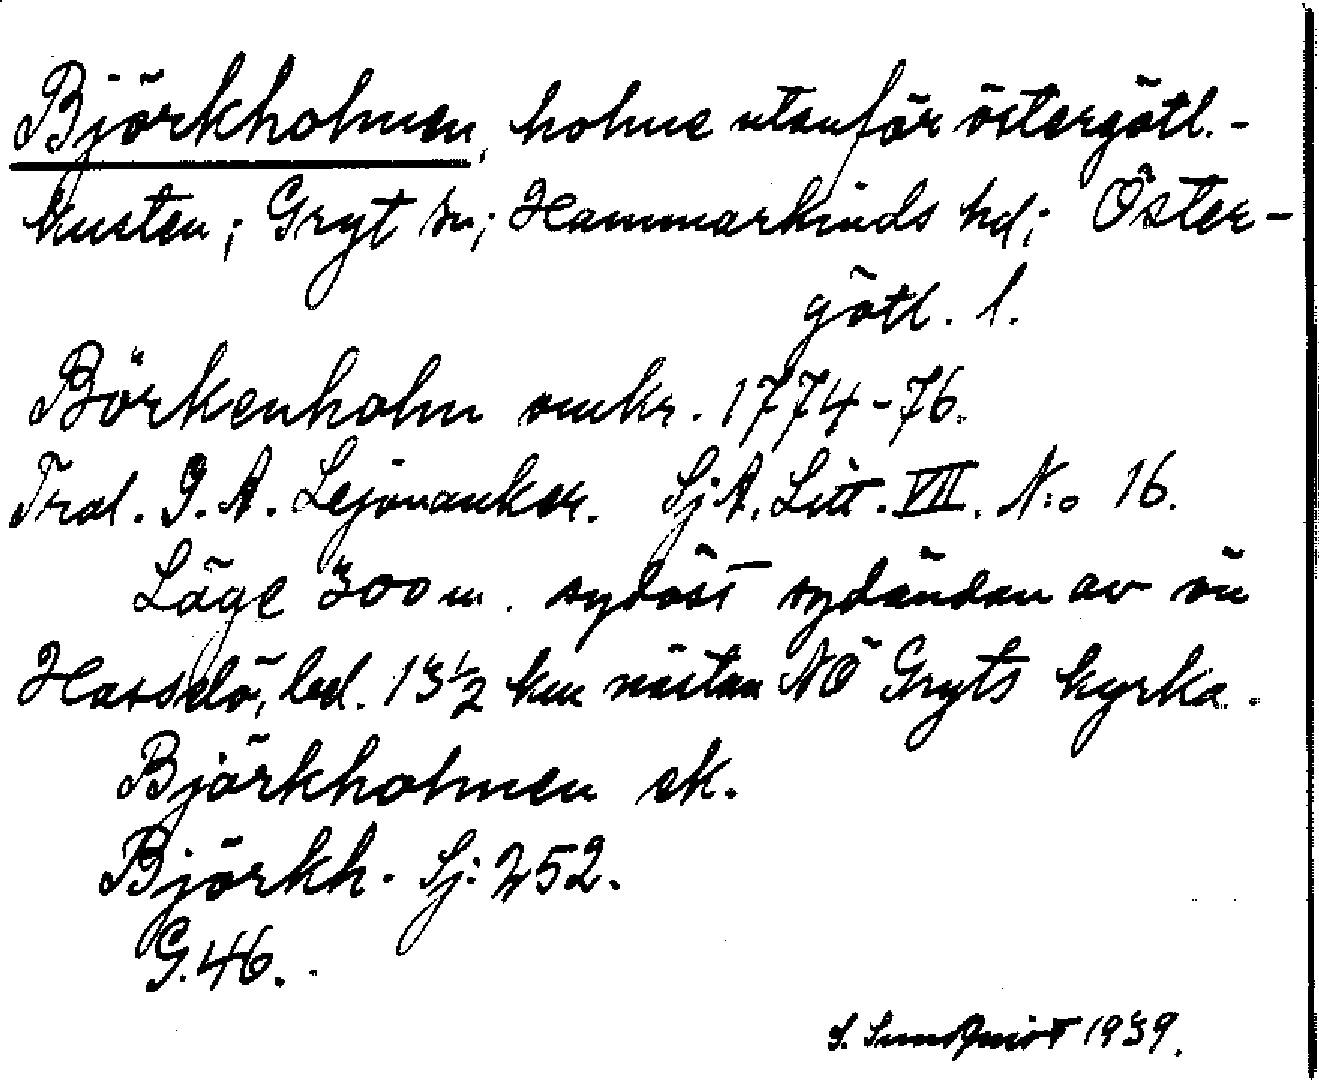 Björkholmen, holme utanför östergötl.-
kusten; Gryt sn; Hammarkinds hd; Öster-
götl. l.
Börkenholm omkr. 1774-76.
Trol. G. A. Lejonanker. SjA. Litt. VII. N:o 16.
Läge 300 m. sydöst sydändan av ön
Hasselö, bel. 13 1/2 km nästan NÖ Gryts kyrka.
Björkholmen ek.
Björkh. Sj: 252.
G. 46.
S. Sundqvist 1939.